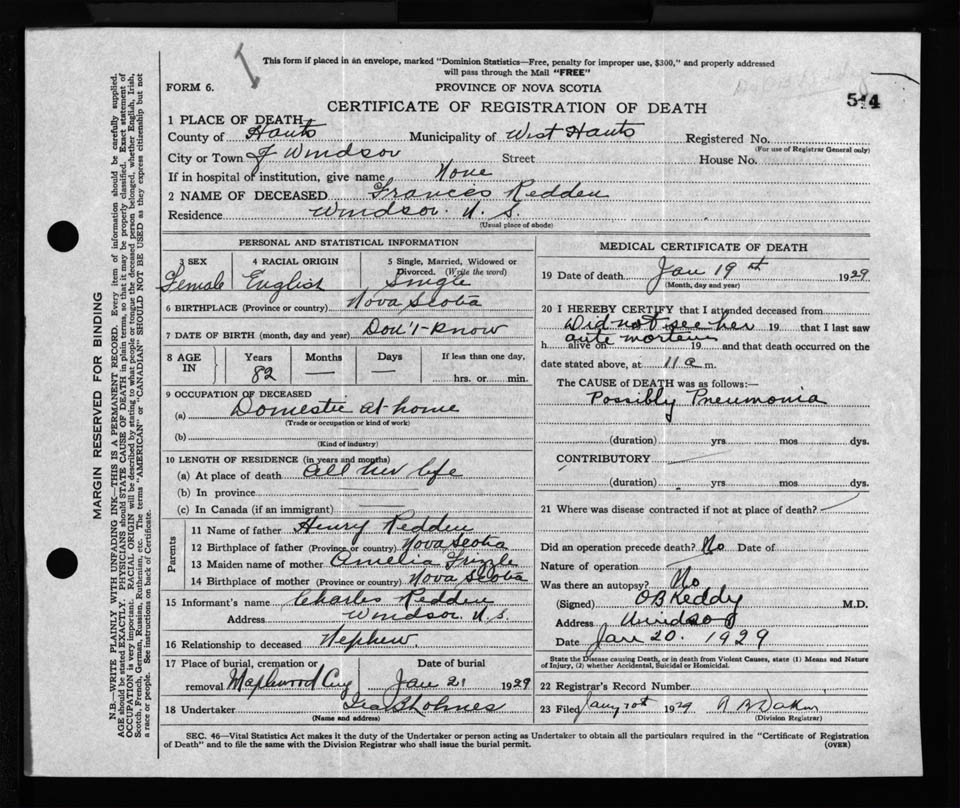 This form if placed in an envelope, marked "Dominion Statistics—Free, penalty for improper use, $300," and properly addressed
will pass through the Mail "FREE"
FORM 6.
PROVINCE OF NOVA SCOTIA
514
CERTIFICATE OF REGISTRATION OF DEATH
1 PLACE OF DEATH
County of Hants Municipality of West Hants Registered No.
(For use of Registrar General only)
City or Town of Windsor Street House No.
If in hospital of institution, give name None
2 NAME OF DECEASED Frances Redden
Residence Windsor. N. S.
(Usual place of abode)
PERSONAL AND STATISTICAL INFORMATION
3 SEX 4 RACIAL ORIGIN 5 Single, Married, Widowed or
Divorced. (Write the word)
Female English Single
6 BIRTHPLACE (Province or country) Nova Scotia
7 DATE OF BIRTH (month, day and year) Don't Know
8 AGE IN Years Months Days If less than one day,
82 — — hrs. or min.
9 OCCUPATION OF DECEASED
(a) Domestic at home
(Trade or occupation or kind of work)
(b)
(Kind of industry)
10 LENGTH OF RESIDENCE (in years and months)
(a) At place of death all her life
(b) In province
(c) In Canada (if an immigrant)
Parents
11 Name of father Henry Redden
12 Birthplace of father (Province or country) Nova Scotia
13 Maiden name of mother Amelia Frizzle
14 Birthplace of mother (Province or country) Nova Scotia
15 Informant's name Charles Redden
Address Windsor. N.S.
16 Relationship to deceased Nephew.
17 Place of burial, cremation or Date of burial
removal Maplewood Cem Jan 21 1929
18 Undertaker
(Name and address)
MEDICAL CERTIFICATE OF DEATH
19 Date of death Jan 19th 1929
(Month, day and year)
20 I HEREBY CERTIFY that I attended deceased from
Did not see her 19 that I last saw
ante mortem
h alive on 19 and that death occurred on the
date stated above, at 11 a m.
The CAUSE of DEATH was as follows:—
Possibly Pneumonia
(duration) yrs mos dys.
CONTRIBUTORY
(duration) yrs mos dys.
21 Where was disease contracted if not at place of death?
Did an operation precede death? No Date of
Nature of operation
Was there an autopsy? No
(Signed) O B Keddy M.D.
Address Windsor
Date Jan 20. 1929
State the Disease causing Death, or in death from Violent Causes, state (1) Means and Nature
of Injury, (2) whether Accidental, Suicidal or Homicidal.
22 Registrar's Record Number
23 Filed 1929
(Division Registrar)
SEC. 46—Vital Statistics Act makes it the duty of the Undertaker or person acting as Undertaker to obtain all the particulars required in the "Certificate of Registration
of Death" and to file the same with the Division Registrar who shall issue the burial permit.
(OVER)
MARGIN RESERVED FOR BINDING
N.B.—WRITE PLAINLY WITH UNFADING INK—THIS IS A PERMANENT RECORD. Every item of information should be carefully supplied.
AGE should be stated EXACTLY. PHYSICIANS should STATE CAUSE OF DEATH in plain terms, so that it may be properly classified. Exact statement of
OCCUPATION is very important. RACIAL ORIGIN will be described by stating to what people or tongue the deceased person belonged, whether English, Irish,
Scotch, French, German, Russian, Ruthenian, etc. The terms "AMERICAN" or "CANADIAN" SHOULD NOT BE USED as they express citizenship but not
a race or people. See instructions on back of Certificate.